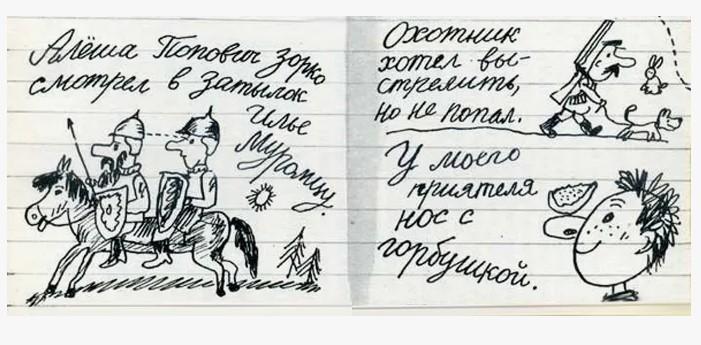 Алёша Попович зорко
смотрел в затылок
Илье
Муромцу.
Охотник
хотел вы-
стрелить,
но не попал.
У моего
приятеля
нос с
горбушкой.